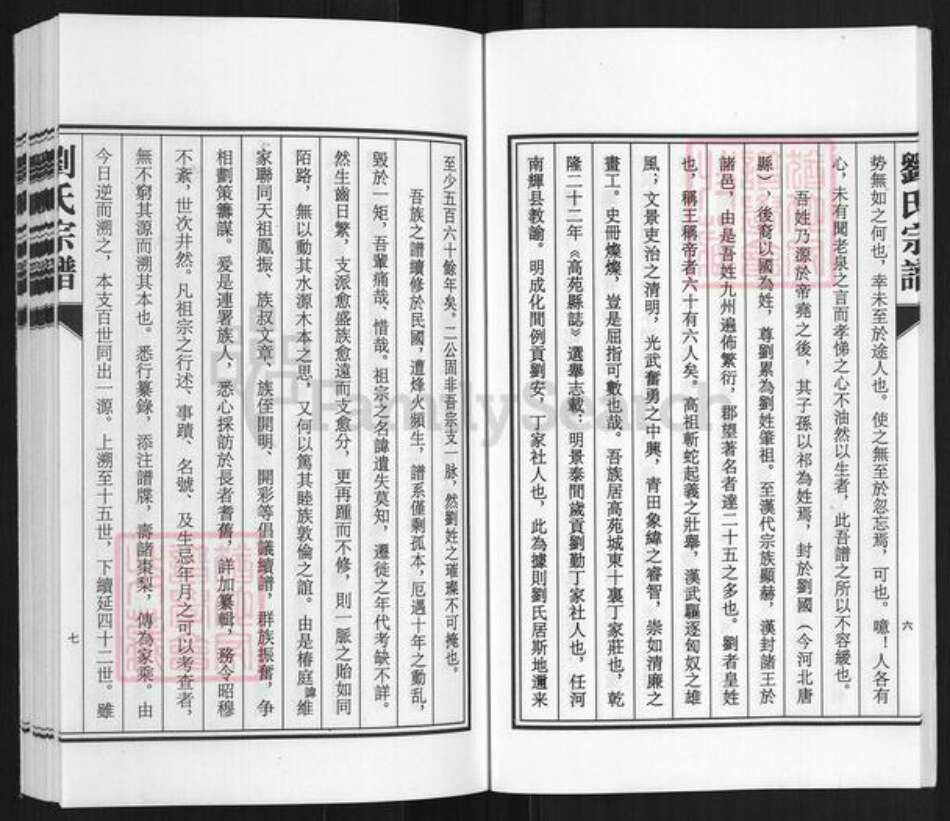 劉氏宗譜
勢無如之何也，幸未至於途人也。使之無至於忽忘焉，可也。噫！人各有
心，未有聞老泉之言而孝悌之心不油然以生者，此吾譜之所以不容緩也。
吾姓乃源於帝堯之後，其子孫以祁為姓焉，封於劉國（今河北唐
縣），後裔以國為姓，尊劉累為劉姓肇祖。至漢代宗族顯赫，漢封諸王於
諸邑，由是吾姓九州遍佈繁衍，郡望著名者達二十五之多也。劉者皇姓
也，稱王稱帝者六十有六人矣。高祖斬蛇起義之壯舉，漢武驅逐匈奴之雄
風；文景吏治之清明，光武奮勇之中興，青田象緯之睿智，崇如清廉之
畫工。史冊燦燦，豈是屈指可數也哉。吾族居高苑城東十裏丁家莊也，乾
隆二十二年《高苑縣誌》選舉志載：明景泰間歲貢劉勤丁家社人也，任河
南輝县教諭。明成化間例貢劉安，丁家社人也，此為據則劉氏居斯地邇来
六
至少五百六十餘年矣。二公固非吾宗支一脉，然劉姓之璀璨不可掩也。
吾族之譜續修於民國，遭烽火頻生，譜系僅剩孤本，厄遇十年之動乱，
毀於一矩，吾輩痛哉、惜哉。祖宗之名諱遺失莫知，遷徙之年代考缺不詳。
然生齒日繁，支派愈盛族愈遠而支愈分，更再踵而不修，則一脈之貽如同
陌路，無以動其水源木本之思，又何以篤其睦族敦倫之誼。由是椿庭諱維
家聯同天祖鳳振、族叔文章、族侄開明、開彩等倡議續譜，群族振奮，争
相劃策籌謀。爰是連署族人，悉心採訪於長者耆舊，詳加纂輯，務令昭穆
不紊，世次井然。凡祖宗之行述、事蹟、名號、及生忌年月之可以考查者，
無不窮其源而溯其本也。悉行纂錄，添注譜牒，壽諸棗梨，傳為家乘。由
今日逆而溯之，本支百世同出一源。上溯至十五世，下續延四十二世。雖
七
劉氏宗譜
FamilySearch